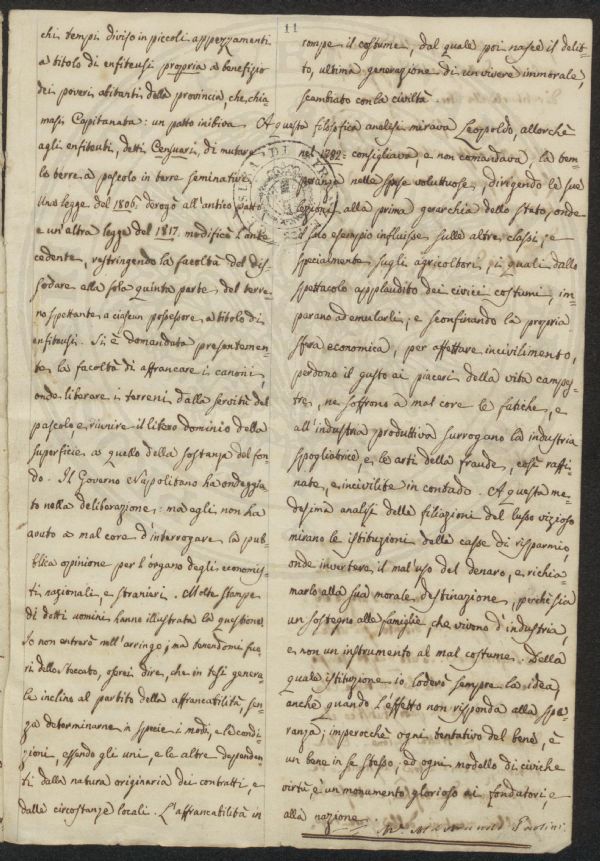 11
chi tempi diviso in piccoli appezzamenti
a titolo di enfiteusi propria a benefizio
dei poveri abitanti della provincia, che chia=
masi Capitanata: un patto inibiva
agli enfiteuti, detti Censuari, di mutare
le terre a pascolo in terre seminative.
Una legge del 1806. derogò all'antico patto
e un'altra legge del 1817. modificò l'ante
cedente, restringendo la facoltà del dis=
sodare alla sola quinta parte del terre=
no spettante a ciascun possessore a titolo di
enfiteusi. Si è domandata presentemen=
te la facoltà di affrancare i canoni,
onde liberare i terreni dalla servitù del
pascolo, e riunire il libero dominio della
superficie a quello della sostanza del fon=
do. Il Governo Napolitano ha ondeggia=
to nella deliberazione: ma egli non ha
avuto a mal core d'interrogare la pub=
blica opinione per l'organo degli economis=
ti nazionali, e stranieri. Molte stampe
di dotti uomini hanno illustrata la questione.
Io non entrerò nell'arringo; ma tenendomi fuo=
ri dello steccato, oserei dire, che in tesi genera=
le inclino al partito della affrancabilità, sen=
za determinarne in specie i modi, e le condi=
zioni, essendo gli uni, e le altre dependen=
ti dalla natura originaria dei contratti, e
dalle circostanze locali. L'affrancabilità in
rompe il costume, dal quale poi nasce il delit=
to, ultima generazione di un vivere immorale,
scambiato con la civiltà.
A questa filosofica analisi mirava Leopoldo, allorchè
nel 1782. consigliava, e non comandava, la tem=
peranza nelle spese voluttuose, dirigendo le sue
lezioni alla prima gerarchia dello stato, onde
il suo esempio influisse sulle altre classi, e
specialmente sugli agricoltori, i quali dallo
spettacolo applaudito dei civici costumi, im=
parano ad emularli; e sconfinando la propria
sfera economica, per affettare incivilimento,
perdono il gusto ai piaceri della vita campes=
tre, ne soffrono a mal core le fatiche, e
all'industria produttiva surrogano la industria
spogliatrice, e le arti della fraude, così raffi=
nate, e incivilite in contado. A questa me=
desima analisi delle filiazioni del lusso vizioso
mirano le istituzioni delle casse di risparmio,
onde invertere il mal'uso del denaro, e richia=
marlo alla sua morale destinazione, perchè sia
un sostegno alle famiglie, che vivono d'industria,
e non un instrumento al mal costume. Della
quale istituzione io loderò sempre la idea,
anche quando l'effetto non risponda alla spe=
ranza; imperocchè ogni tentativo del bene, è
un bene in se stesso; ed ogni modello di civiche
virtù è un monumento glorioso ai fondatori, e
alla nazione.
Paolini